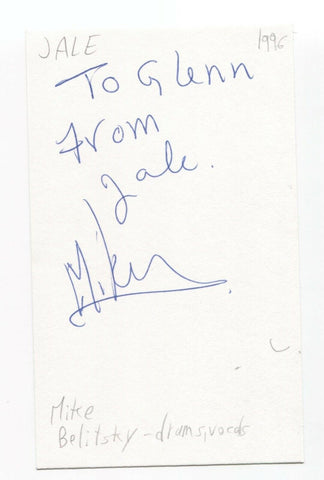 JALE 1996
To Glenn
From
Jale.
Mike
Mike
Belitsky - drums, vocals